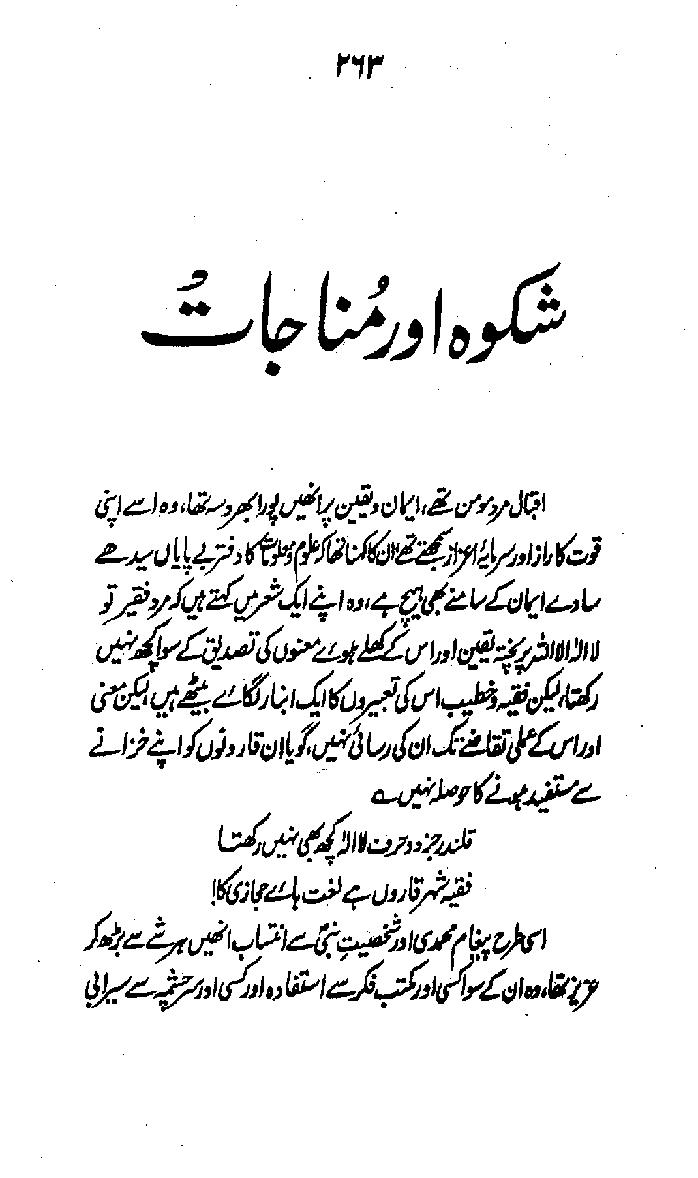 ۲۶۳
شکوہ اور مُناجات
اقبال مرد مومن تھے، ایمان و یقین پر انھیں پورا بھروسہ تھا، وہ اسے اپنی
قوت کا راز اور سرمایۂ اعزاز سمجھتے تھے ان کا کہنا تھا کہ علوم و معلومات کا دفتر بے پایاں سیدھے
سادے ایمان کے سامنے بھی ہیچ ہے، وہ اپنے ایک شعر میں کہتے ہیں کہ مرد فقیر تو
لا الٰہ الا اللہ پر پختہ یقین اور اس کے کھلے ہوے معنوں کی تصدیق کے سوا کچھ نہیں
رکھتا، لیکن فقیہ و خطیب اس کی تعبیروں کا ایک انبار لگاے بیٹھے ہیں، لیکن معنی
اور اس کے عملی تقاضے تک ان کی رسائی نہیں، گویا ان قارونوں کو اپنے خزانے
سے مستفید ہونے کا حوصلہ نہیں ؎
قلندر جز دو حرف لا الٰہ کچھ بھی نہیں رکھتا
فقیہ شہر قاروں ہے لغت ہاے حجازی کا!
اسی طرح پیغام محمدی اور شخصیتِ نبیؐ سے انتساب انھیں ہر شے سے بڑھ کر
عزیز تھا، وہ ان کے سوا کسی اور مکتب فکر سے استفادہ اور کسی اور سرچشمہ سے سیرابی